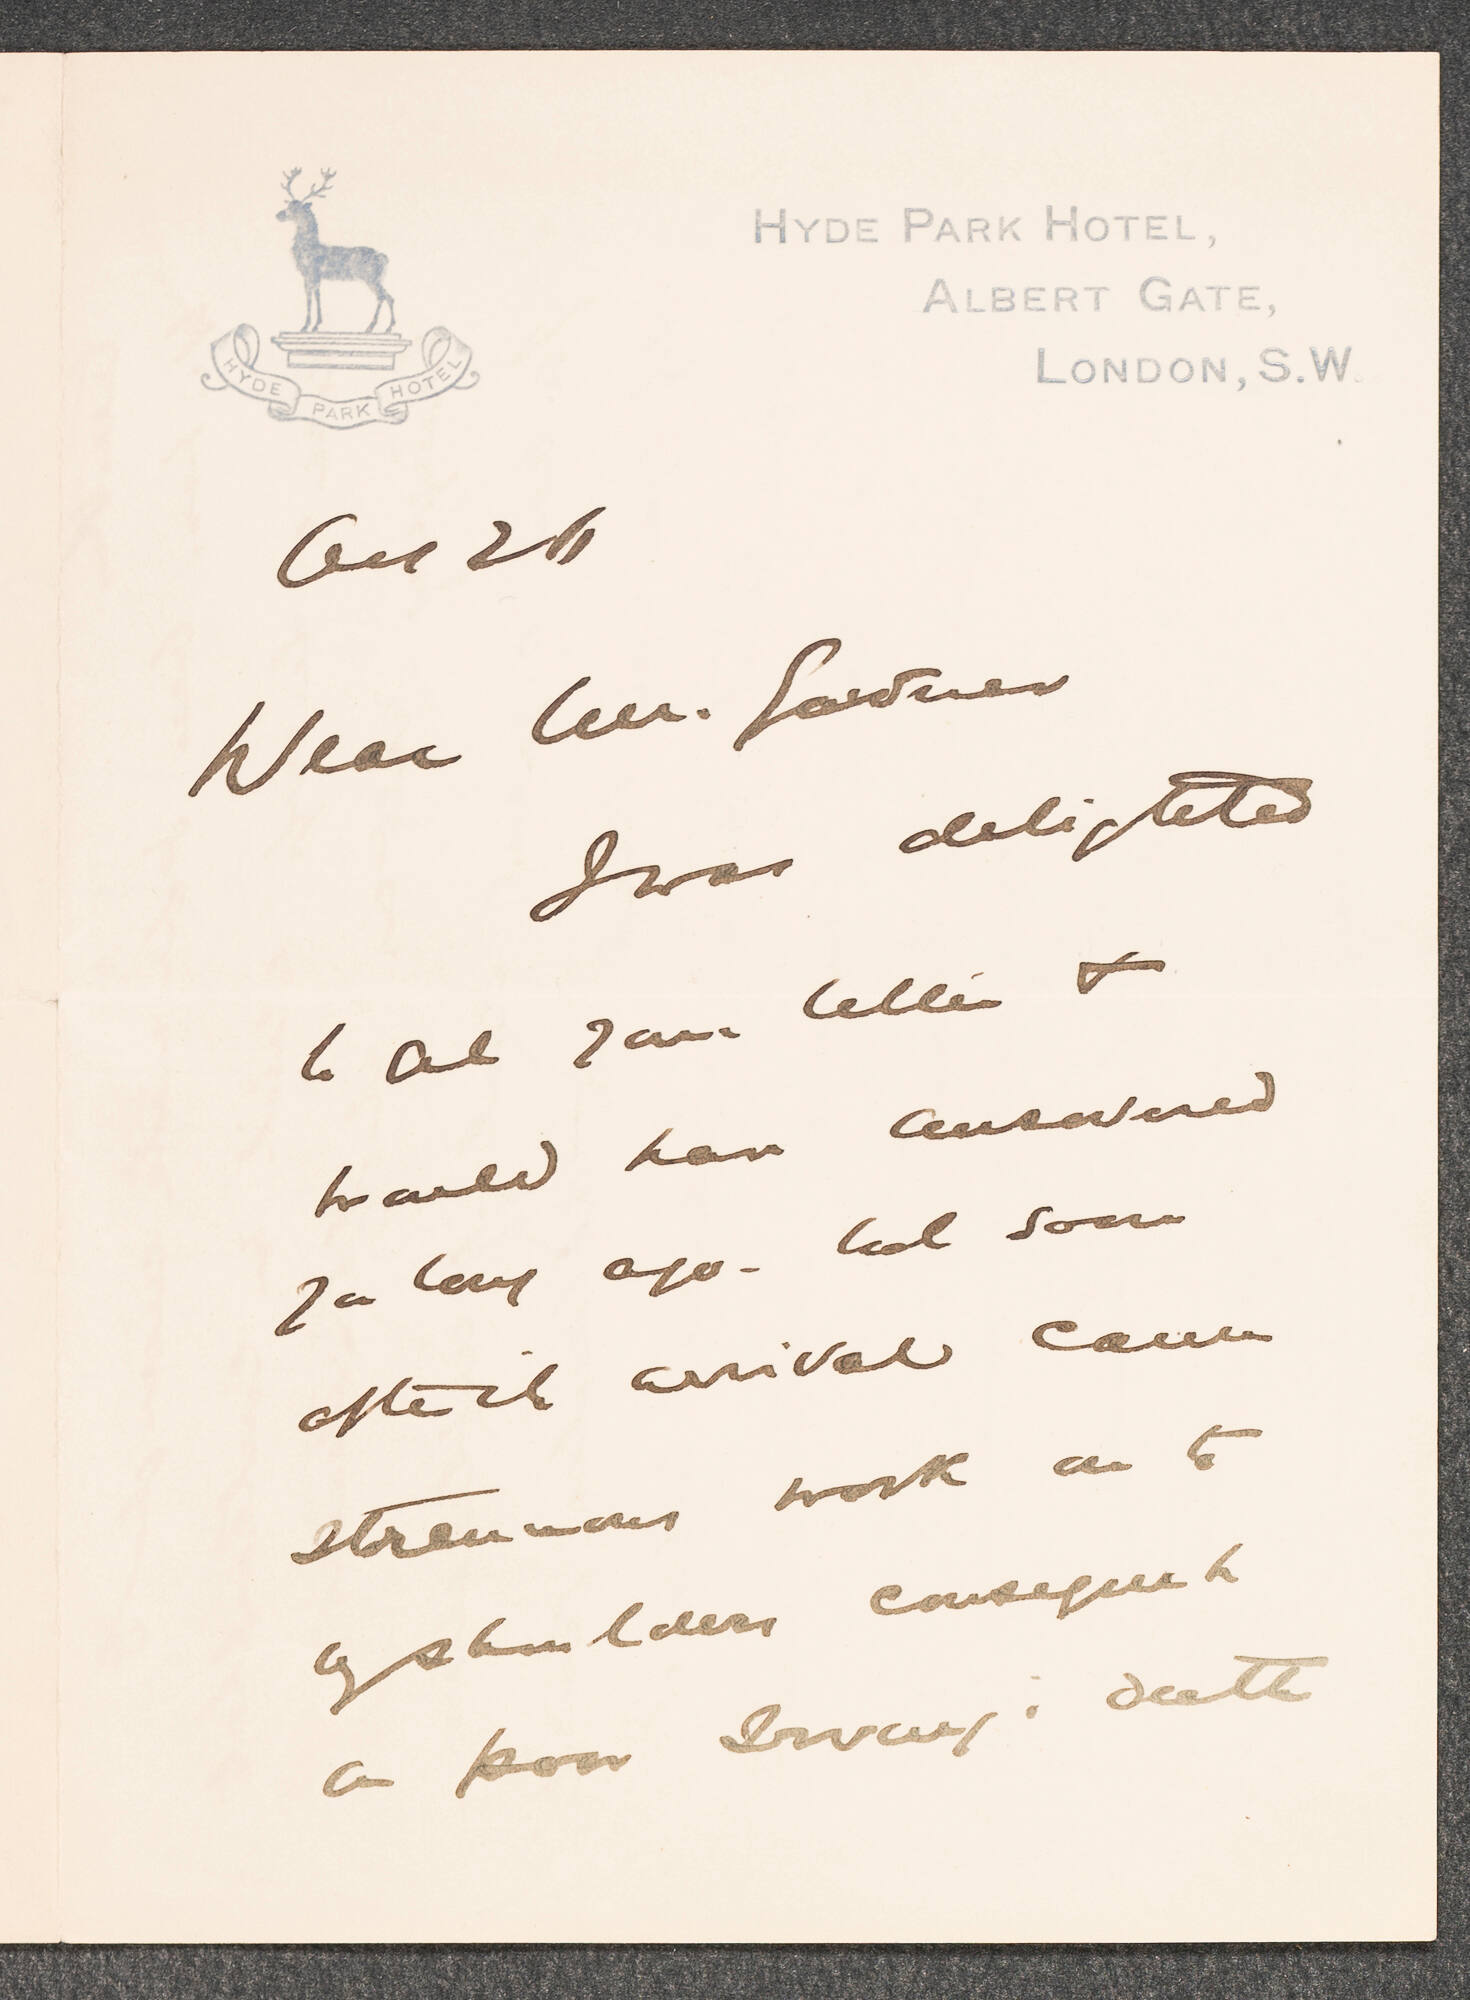 HYDE PARK HOTEL
HYDE PARK HOTEL,
ALBERT GATE,
LONDON, S.W.
Dear Mr. Gardner
I was delighted
to get your letter &
would have answered
you long ago - but soon
after its arrival came
strenuous work on to
my shoulders consequent
on poor Irving's death